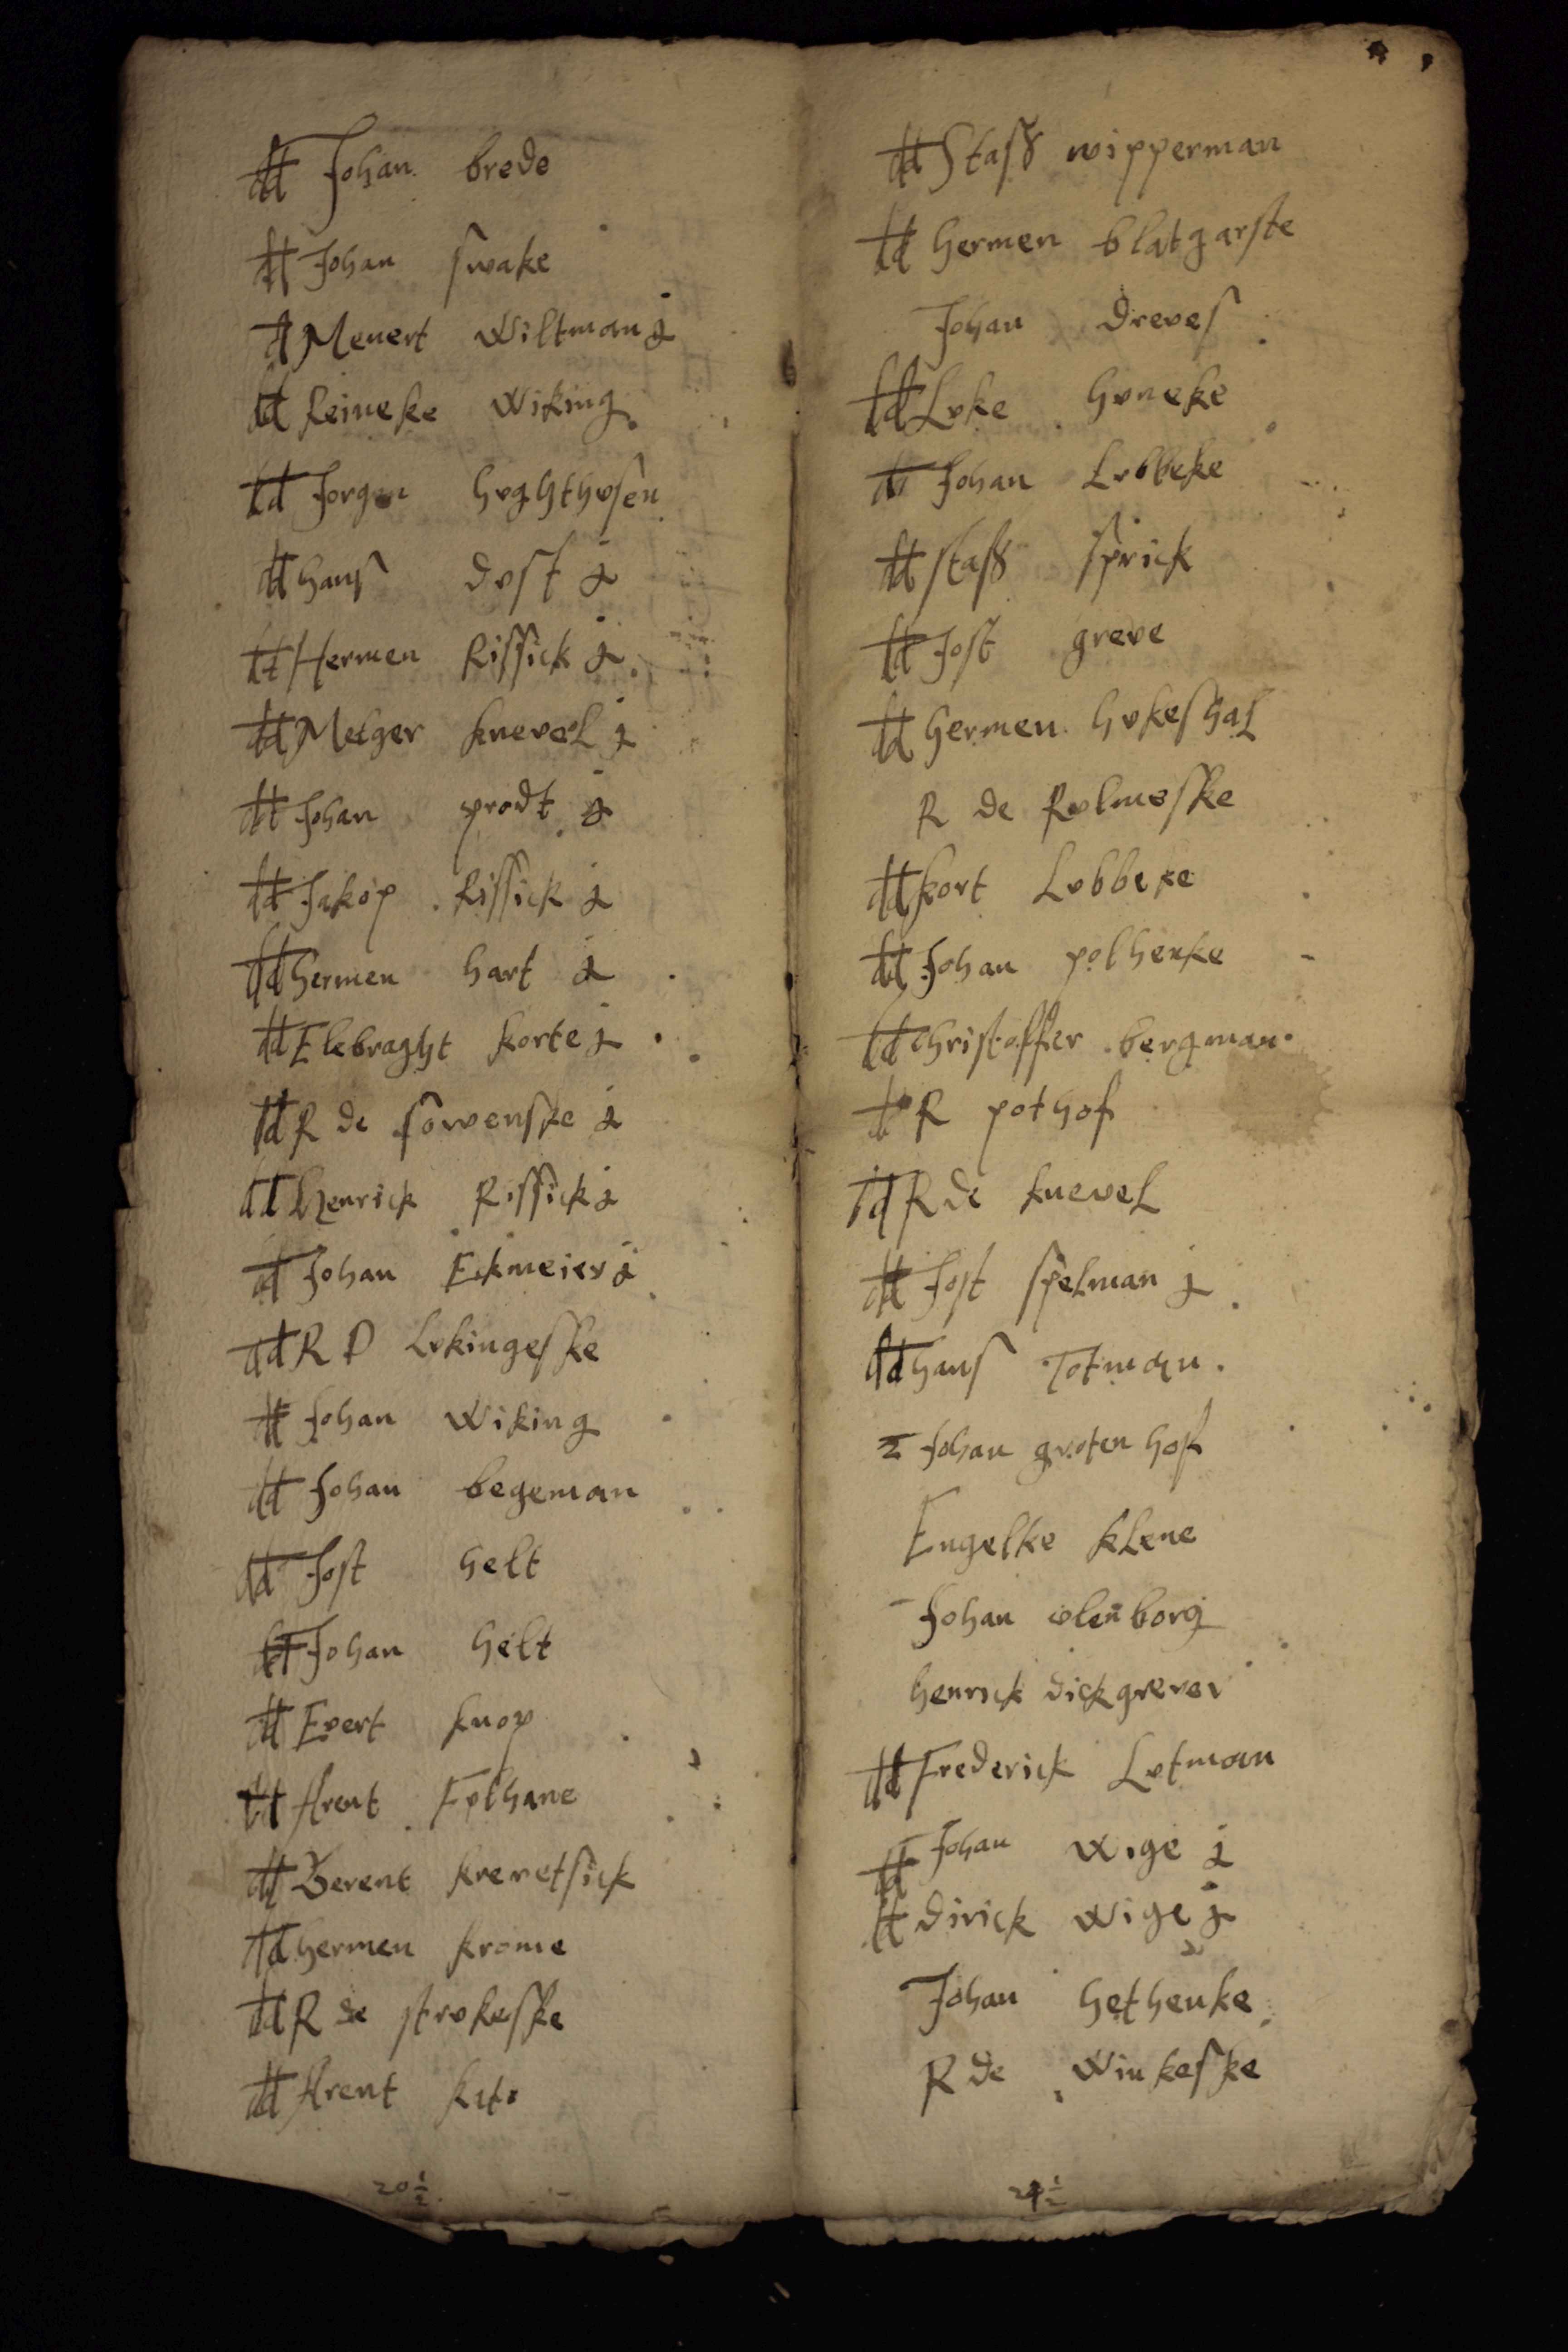 Johan brede
Johan swake
Menert Wiltman j
Reineke Wiking
Jorgen hvghthvsen
hans dvst j
Hermen Rissick j
Metger knevel j
Johan prodt j
Jakop Rissick j
hermen hart j
Elebraght korte j
R de sowenske j
Henrick Rissick j
Johan Eckmeier j
R D Lvkingeske
Johan Wiking
Johan begeman
Jost helt
Johan helt
Evert knop
Arent Fvlhane
Berent krevetsick
hermen krome
R de strvkeske
Arent
20 1/2
Stass wipperman
hermen blatgarste
Johan dreves
Lvke hvneke
Johan Lvbbeke
stass sprick
Jost greve
hermen hvkeshal
R de Rvlmeske
kort Lvbbeke
Johan polhenke
Christoffer bergman
R pothof
R de knevel
Jost spelman j
hans Totman
Johan groten hof
Engelke klene
Johan vlenborg
henrick dickgrever
Frederick Lvtman
Johan Wige j
dirick Wige j
Johan hethenke
R de Winkeske